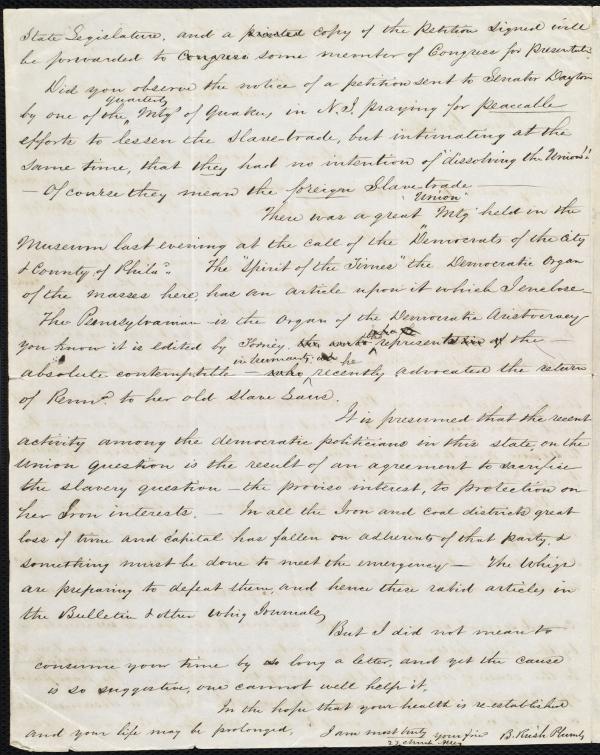 State Legislature, and a printed copy of the Petition signed will
be forwarded to Congress some member of Congress for Presentati
Did you observe the notice of a petition sent to Senator Dayton
quarterly
by one of the Mtgs of Quakers, in N.J. praying for peaceable
efforts to lessen the Slave-trade, but intimating at the
same time, that they had no intention of "dissolving the Union"!
— Of course they mean the foreign Slave-trade —
"Union"
There was a great Mtg held in the
Museum last evening at the call of the "Democrats of the City
& County of Phila". The "Spirit of the Times" the Democratic Organ
of the masses here has an article upon it which I enclose —
The Pennsylvanian is the Organ of the Democratic Aristocracy
you know it is edited by Forney. who represents the —
absolute contemptible — who he recently advocated the return
of Penna. to her old Slave Laws.
It is presumed that the recent
activity among the democratic politicians in this state on the
Union question is the result of an agreement to sacrifice
the slavery question — the proviso interest, to protection on
her Iron interests. — In all the Iron and coal districts great
loss of time and capital has fallen on adherents of that party, &
something must be done to meet the emergency — The Whigs
are preparing to defeat them, and hence these rabid articles in
the Bulletin & other Whig Journals,
But I did not mean to
consume your time by so long a letter, and yet the cause
is so suggestive, one cannot well help it,
In the hope that your health is re-established
and your life may be prolonged, I am most truly your friend B. Rush Plumly